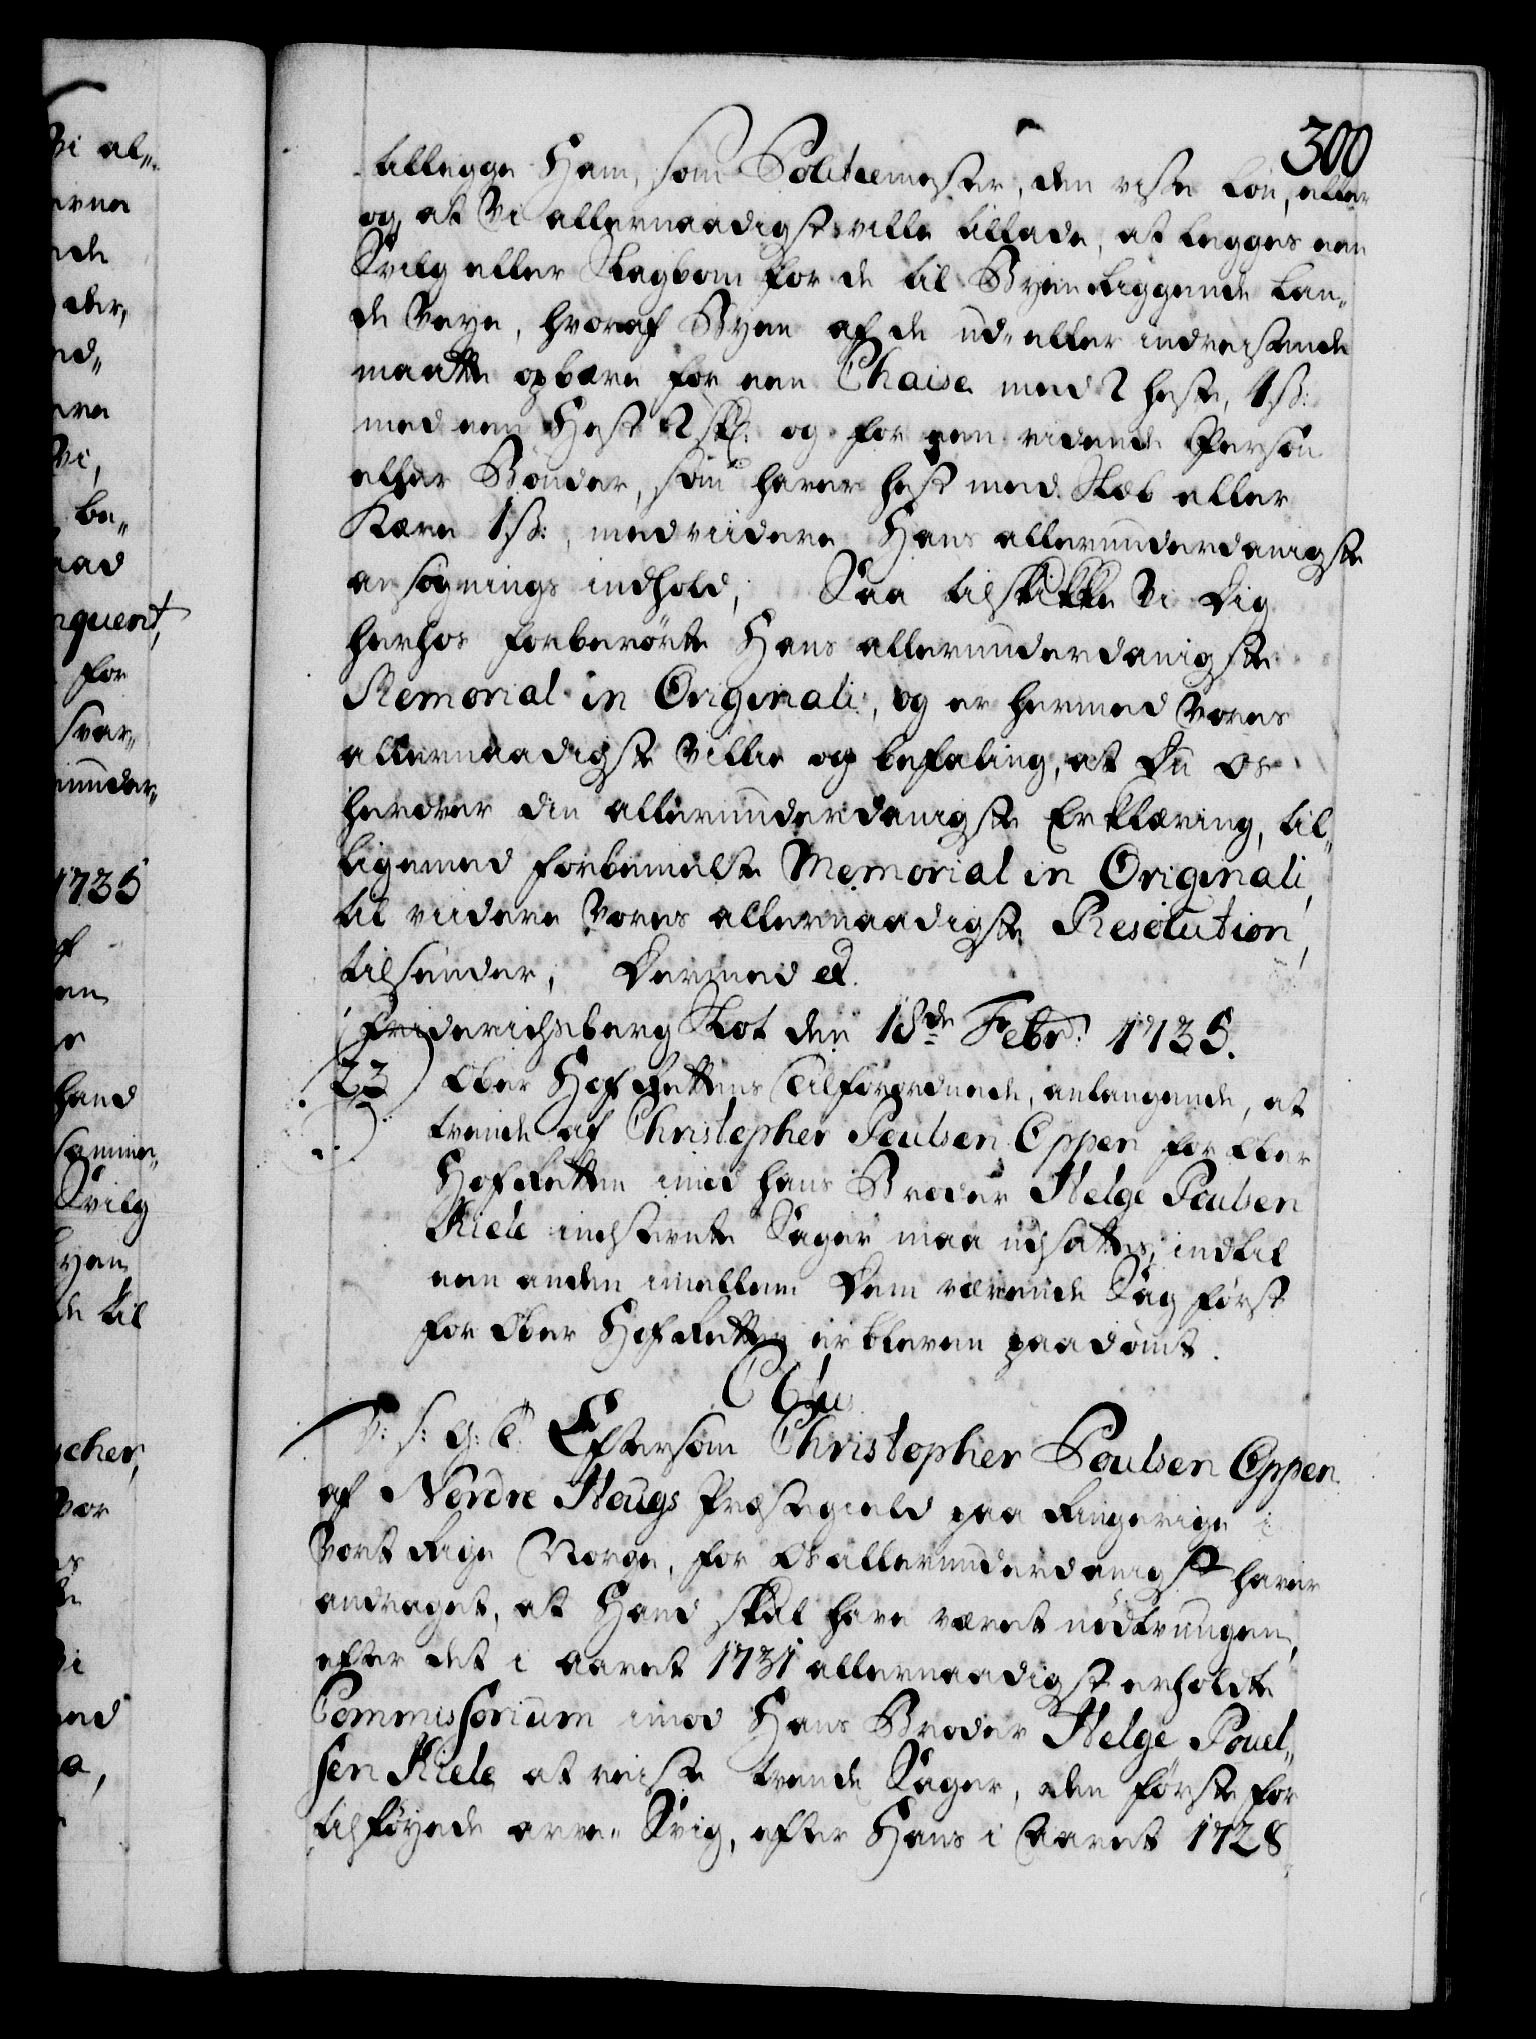 300
tillegge Ham, som Politiemester, den viste Lön, eller
og, at Vi allernaadigst ville tillade, at legges een
Svilg eller Slagbom for de til Byen liggende Lan„
de Veye, hvoraf Byen af de ud- eller indreisende
maatte opbære for een Chaise med 2 heste, 4 ß:
med een Hest 2 sk: og for een ridende Person
eller Bönder, som haver hest med Slæb eller
Kære 1 ß:, med viidere Hans allerunderdanigste
ansögnings indhold; Saa tilskikke Vi Dig
herhos forberörte Hans allerunderdanigste
Memorial in Originali, og er hermed Vores
allernaadigste Villie og befaling, at Du Os
herover din allerunderdanigste Erklæring, til„
ligemed forbemelte Memorial in Originali,
til viidere Vores allernaadigste Resolution,
tilsender, Dermed etc.
Friderichsberg Slot den 18de Febr: 1735.
23) Ober Hof Rettens Tilforordnede, anlangende, at
trende af Christopher Poulsen Oppen for Ober
Hof Retten imod hans Broder Helge Poulsen
Kiele indstevnte Sager maa udsættes, indtil
een anden imellem Dem værende Sag först
for Ober Hof Retten er bleven paadömt.
C 6tus
V: S: G: T: Eftersom Christopher Poulsen Oppen
af Nordre Hougs Præstegield paa Ringerige i
Vort Rige Norge, for Os allerunderdanigst haver
andraget, at Hand skal have været nödtrungen,
efter det i Aaret 1731 allernaadigst erholdte
Commissorium imod Hans Broder Helge Pouel„
sen Kiele at reise trende Sager, den förste for
tilföyede arve- Svig, efter Hans i Aaret 1728